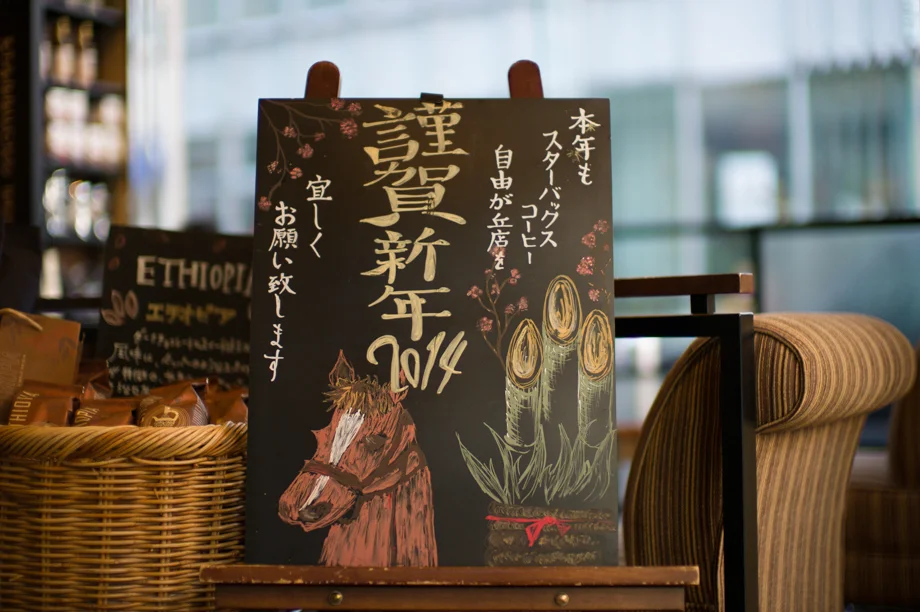 本年も
スターバックス
コーヒー
自由が丘店を
謹賀新年
2014
宜しく
お願い致します
ETHIOPIA
エチオピア